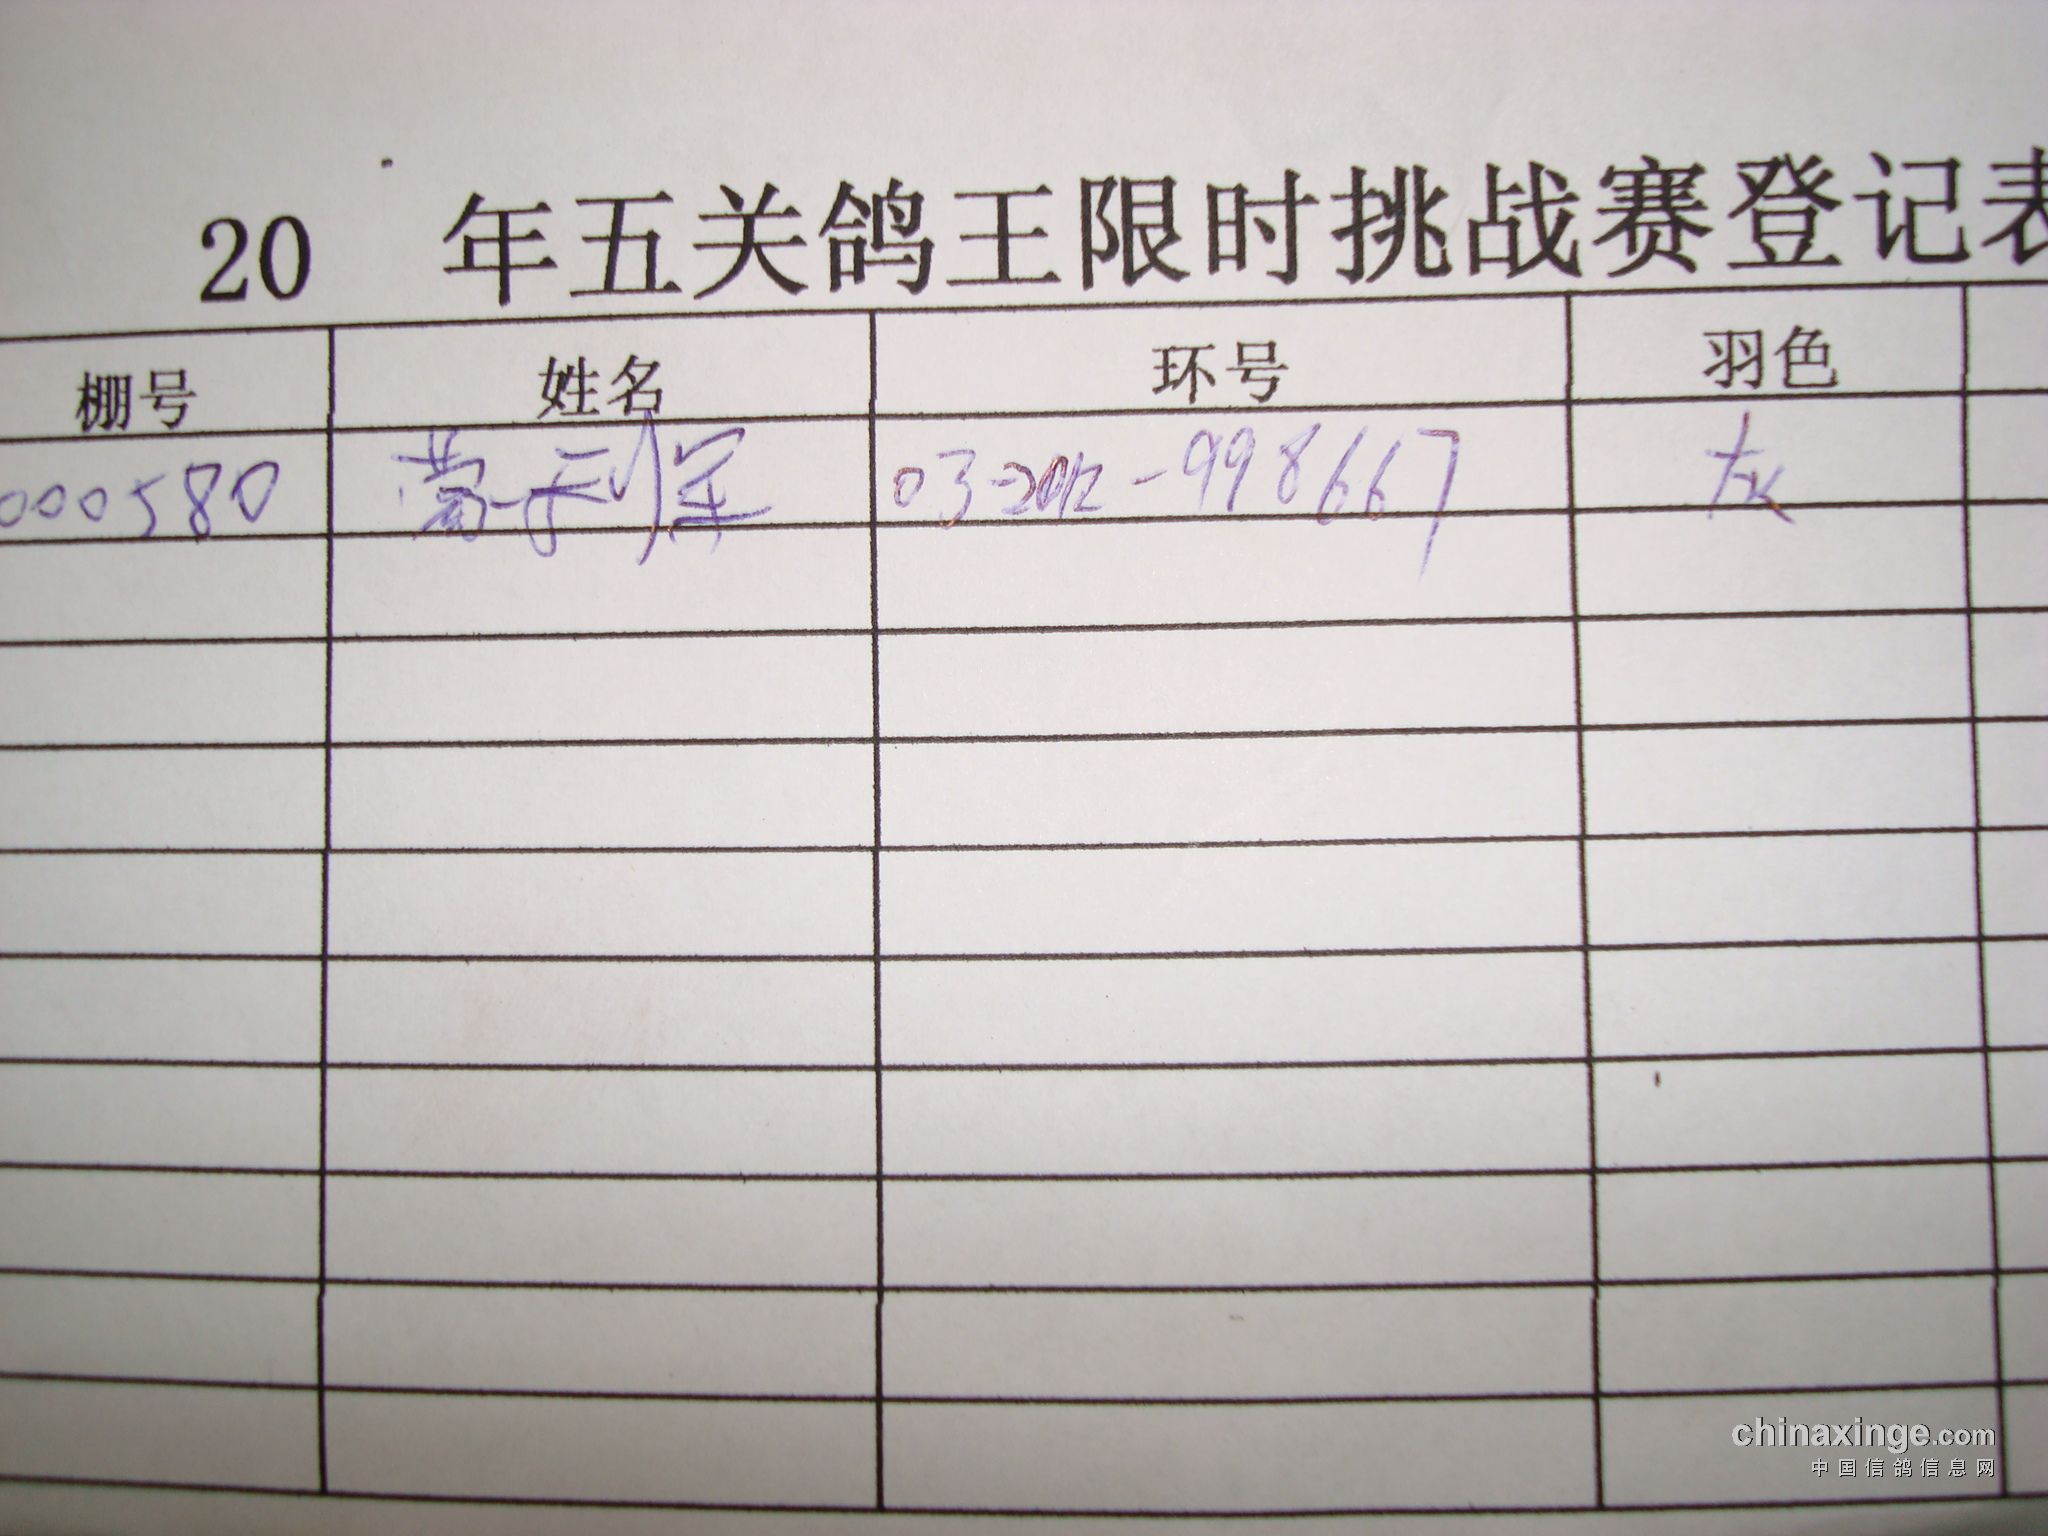 20 年五关鸽王限时挑战赛登记表
棚号 姓名 环号 羽色
000580 03-2012-998667 灰
chinaxinge.com
中国信鸽信息网